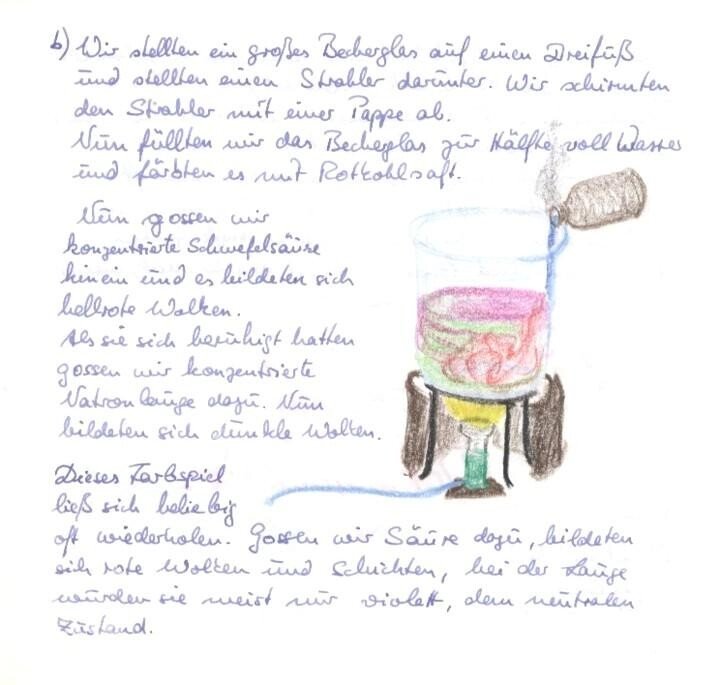 b) Wir stellten ein großes Becherglas auf einen Dreifuß
und stellten einen Strahler darunter. Wir schirmten
den Strahler mit einer Pappe ab.
Nun füllten wir das Becherglas zur Hälfte voll Wasser
und färbten es mit Rotkohlsaft.
Nun gossen wir
konzentrierte Schwefelsäure
hinein und es bildeten sich
hellrote Wolken.
Als sie sich beruhigt hatten
gossen wir konzentrierte
Natronlauge dazu. Nun
bildeten sich dunkle Wolken.
Dieses Farbspiel
ließ sich beliebig
oft wiederholen. Gossen wir Säure dazu, bildeten
sich rote Wolken und Schichten, bei der Lauge
wurden sie meist nur violett, dem neutralen
Zustand.